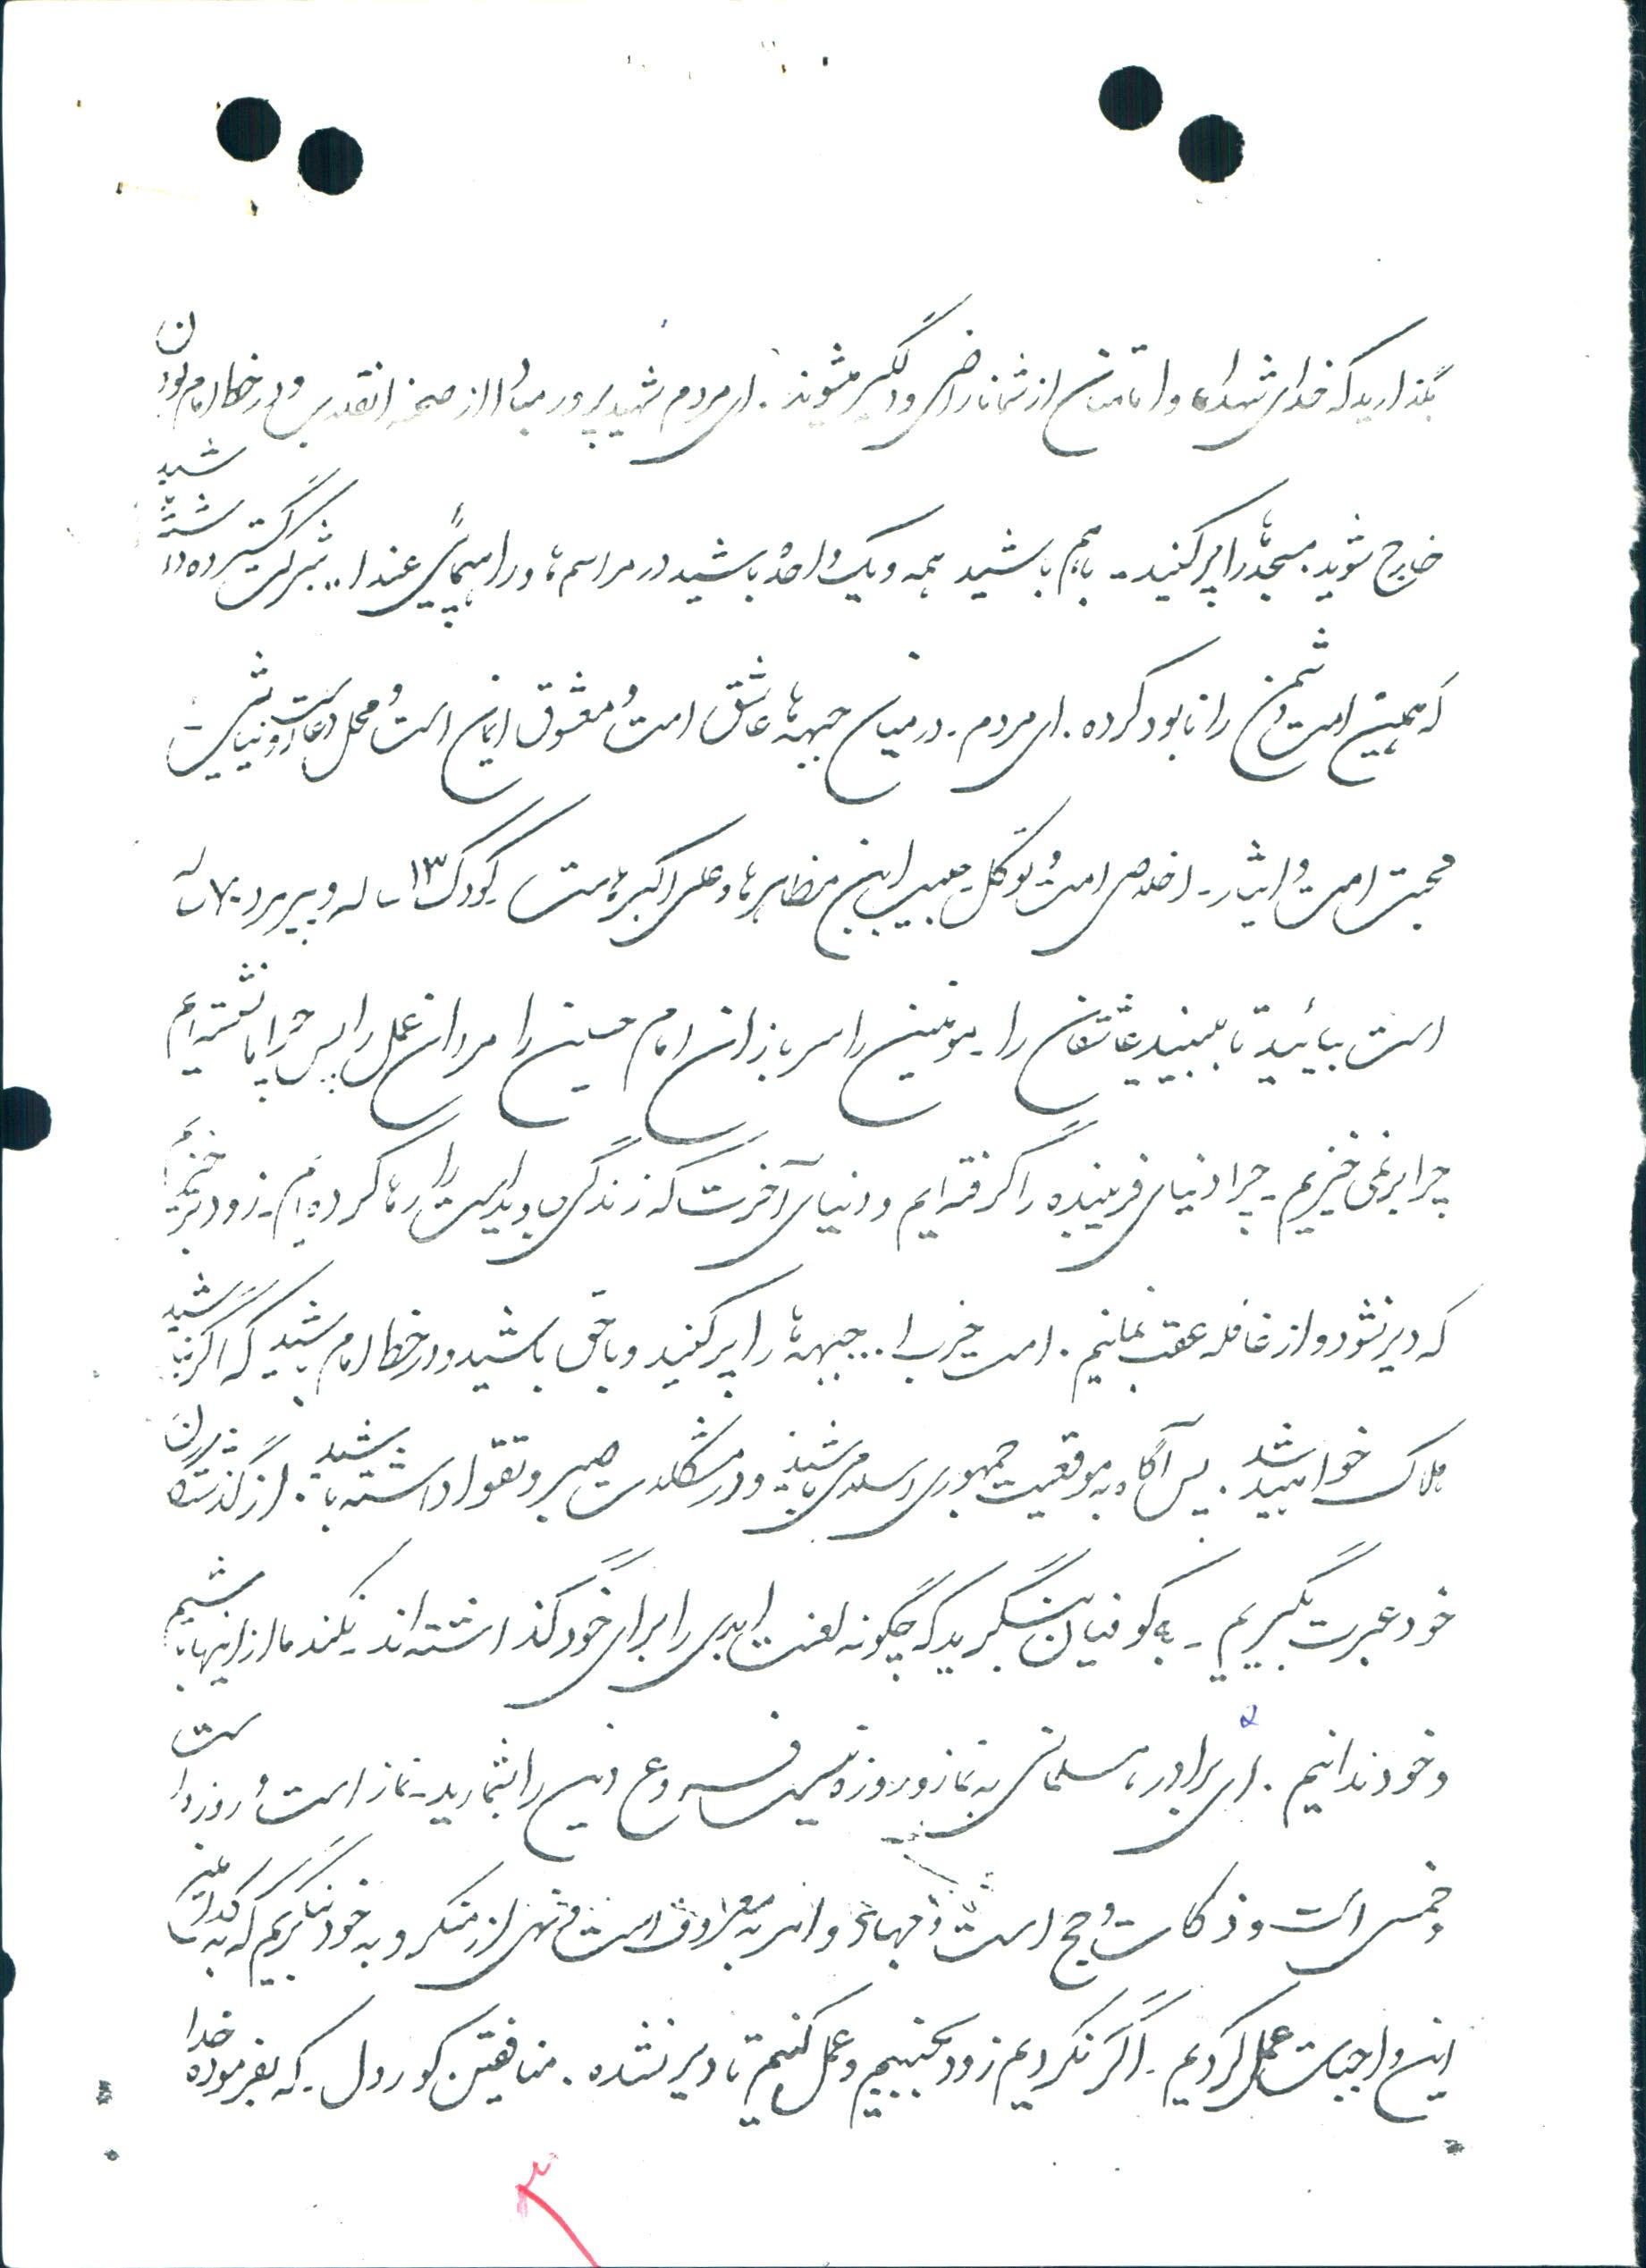 بگذارید که خدای شهداء و امامتان از شما ناراضی و دلگیر میشوند. ای مردم شهید پرور مبادا از صحنه انقلاب و در خط امام بودن
خارج شوید مسجدها را پر کنید - باهم باشید همه و یک واحد باشید در مراسم ها و راهپیمائی عندا.. شرکت گسترده داشته باشید
که همین امت دشمن را نابود کرده. ای مردم - در میان جبهه ها عاشق است و معشوق ایمان است و محل دعا است و نیایش -
محبت است و ایثار - اخلاص است و توکل - حبیب ابن مظاهرها و علی اکبرهاست - کودک ۱۳ ساله و پیرمرد ۷۰ ساله
است بیائید تا ببینید عاشقان را - مومنین را سربازان امام حسین را مردان عمل را پس چرا ما نشسته ایم
چرا بر نمی خیزیم - چرا دنیای فریبنده را گرفته ایم و دنیای آخرت که زندگی جاوید است را رها کرده ایم - زودتر بجنبیم
که دیر نشود و از غافله عقب نمانیم. امت حزب ا... جبهه ها را پر کنید و با حق باشید و در خط امام باشید که اگر نباشید
هلاک خواهید شد. پس آگاه به موقعیت جمهوری اسلامی باشید و در مشکلات صبر و تقوا داشته باشید. از گذشتگان
خود عبرت بگیریم - به کوفیان بنگرید که چگونه لعنت ابدی را برای خود گذاشته اند - نکند ما از اینها باشیم
و خود ندانیم. ای برادر، مسلمانی به نماز و روزه نیست فروع دین را بشمارید - نماز است و روزه است
خمس است و ذکات و حج است و جهاد و امر به معروف است و نهی از منکر و به خود بنگریم که به کدام یک از
این واجبات عمل کردیم - اگر نکردیم زود بجنبیم و عمل کنیم تا دیر نشده. منافقین کوردل - که بفرموده خدا
۳